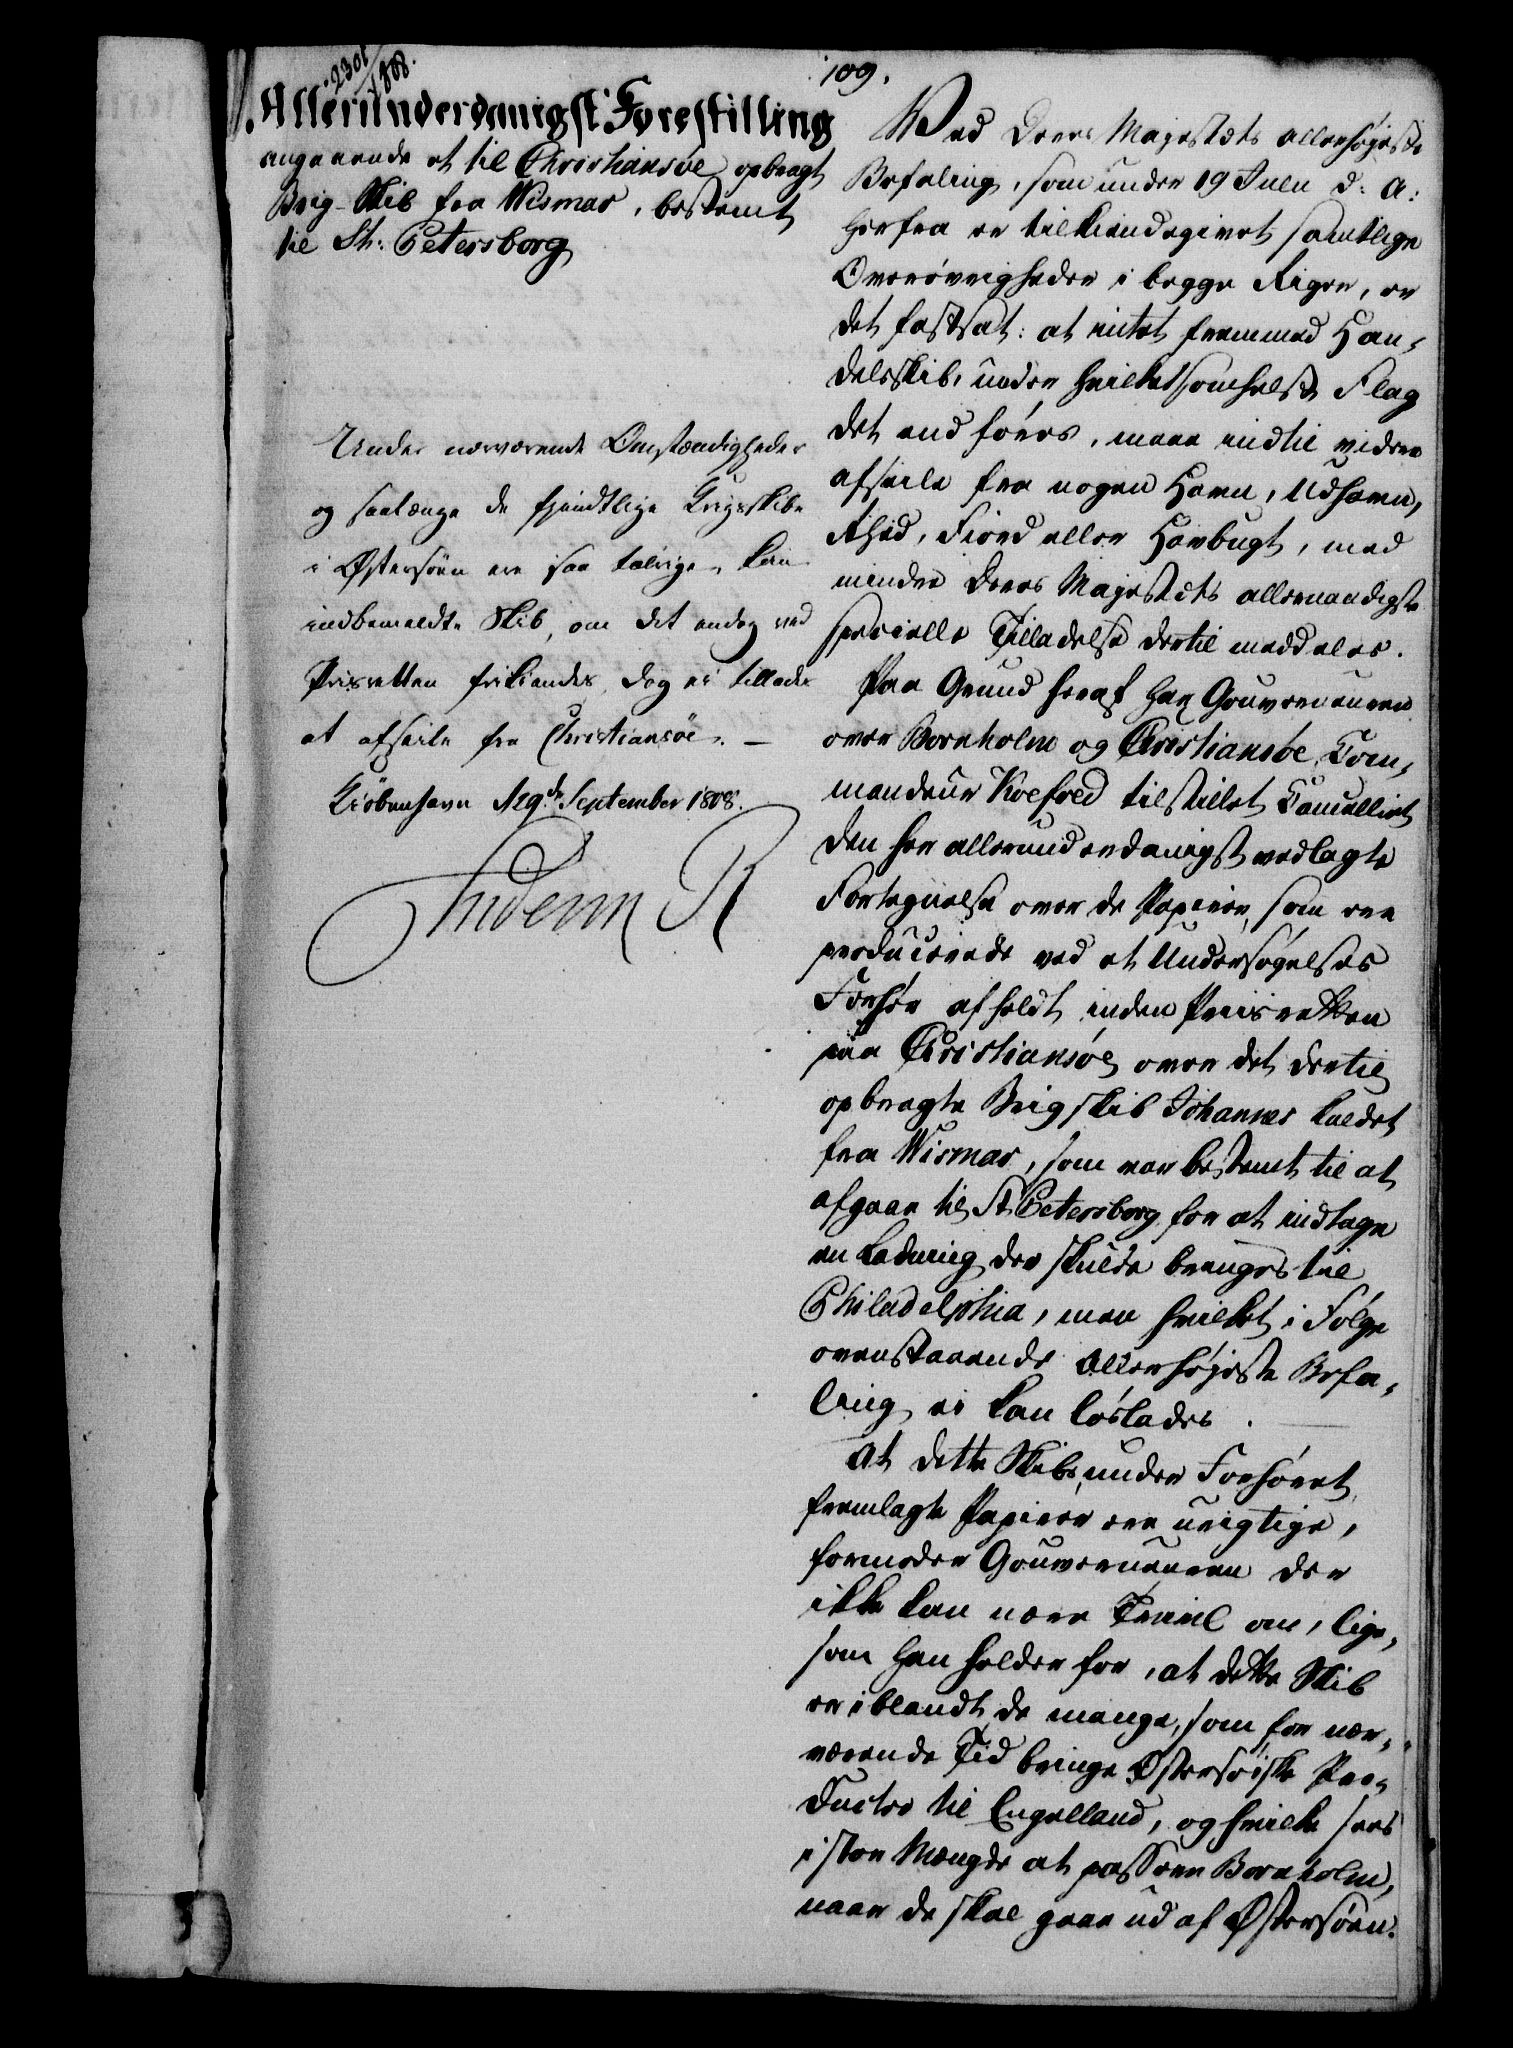 2301/1808.
109.
Allerunderdanigst Forestilling
angaaende et til Christiansøe opbragt
Brig-Skib fra Wismar, bestemt
til St: Petersborg
Under nærværende Omstændigheder
og saalænge de fjendtlige Krigsskibe
i Østersøen ere saa talrige, kan
indbemeldte Skib, om det endog ved
Prisretten frikiendes, dog ei tillades
at afseile fra Christiansøe. —
Kiöbenhavn d: September 1808.
Frideric R
Ved Deres Majestæts allerhøjeste
Befaling, som under 19 Julii d: A:
herfra er tilkiendegivet samtlige
Overøvrigheder i begge Riger, er
det fastsat: at intet fremmed Han-
delsskib, under hvilketsomhelst Flag
det end føres, maae indtil videre
afseile fra nogen Havn, Udhavn,
Rhed, Fiord eller Havbugt, med
mindre Deres Majestæts allernaadigste
specielle Tilladelse dertil meddeles.
Paa Grund heraf har Gouverneuren
over Bornholm og Christiansøe, Com-
mandeur Koefoed tilstillet Cancelliet
den her allerunderdanigst vedlagte
Fortegnelse over de Papirer, som ere
producerede ved et Undersøgelses
Forhør afholdt inden Priisretten
paa Christiansøe over det dertil
opbragte Brigskib Johannes kaldet
fra Wismar, som var bestemt til at
afgaae til St Petersborg for at indtage
en Ladning der skulde bringes til
Philadelphia, men hvilket i Følge
ovenstaaende allerhøjeste Befa-
ling ei kan løslades.
At dette Skibs under Forhøret
fremlagte Papirer ere urigtige,
formoder Gouverneuren der
ikke kan være Tvivl om, lige-
som han holder for, at dette Skib
er iblandt de mange, som for nær-
værende Tid bringe Østersøiske Pro-
ducter til Engelland, og hvilke sees
i stor Mængde at passere Bornholm,
naar de skal gaae ud af Østersøen.